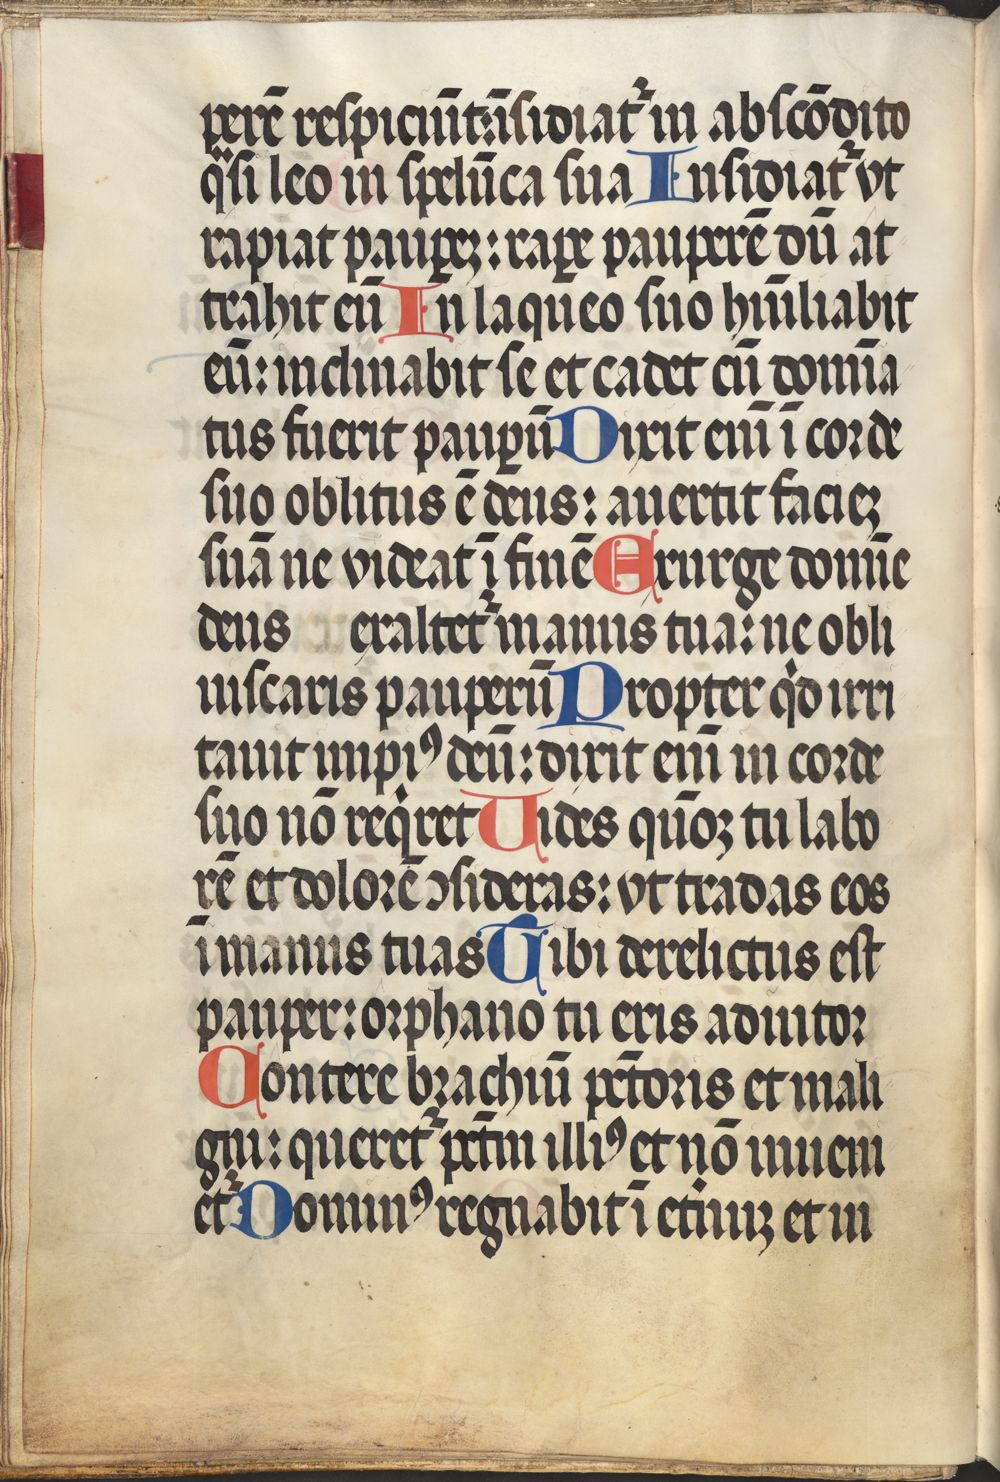 perē respiciūt: īsidiat᷑ in abscōdito
qᷓsi leo in spelūca sua Insidiat᷑ vt
rapiat paupeꝫ: rape pauperē dū at
trahit eū In laqueo suo humīliabit
eū: inclinabit se et cadet cū domīa
tus fuerit paupū Dixit eniī ī corde
suo oblitus ē deus: auertit facieꝫ
suā ne videat ī finē Exurge domīe
deus exaltet᷑ manus tua: ne obli
uiscaris pauperū Propter qͥd irri
tauit impiꝰ deū: dixit eniī in corde
suo nō reqͥret Uides qūoꝫ tu labo
rē et dolorē ↄsideras: vt tradas eos
ī manus tuas Tibi derelictus est
pauper: orphano tu eris adiutor
Contere brachiū pctōris et mali
gni: queret᷑ pctm̄ illiꝰ et nō inueni
et᷑ Dominꝰ regnabit ī etn̄uꝫ et in